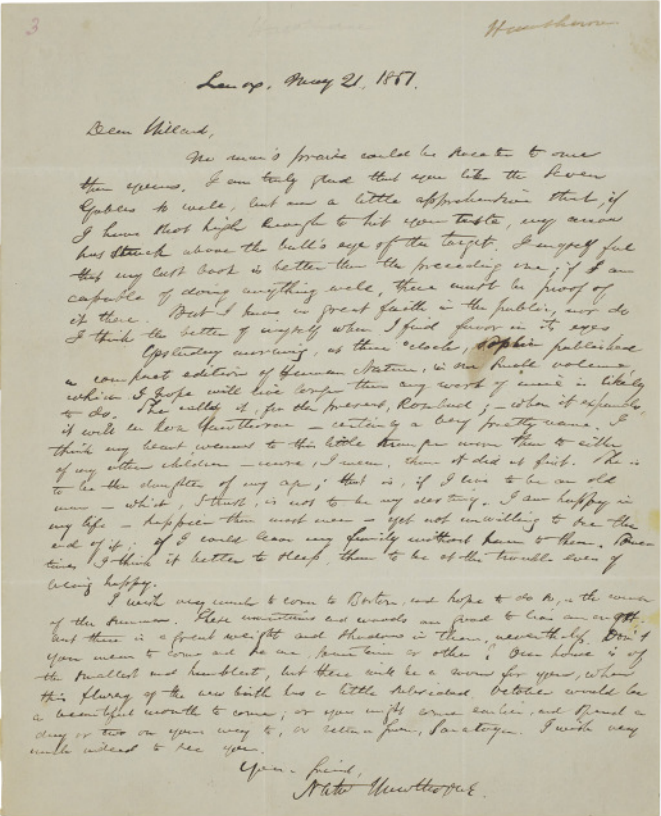 3
Hawthorne
Lenox, May 21, 1851.
Dear Hillard,
No man's praise could be sweeter to me
than yours. I am truly glad that you like the Seven
Gables so well, but am a little apprehensive that, if
I have shot high enough to hit your taste, my arrow
has struck above the bull's eye of the target. I myself feel
that my last book is better than the preceding one; if I am
capable of doing anything well, there must be proof of
it there. But I have no great faith in the public, nor do
I think the better of myself when I find favor in its eyes.
Yesterday morning, at three o'clock, Sophia published
a compact edition of Human Nature, in one small volume,
which I hope will live longer than any work of mine is likely
to do. She calls it, for the present, Rosebud; — when it expands,
it will be Rose Hawthorne — certainly a very pretty name. I
think my heart warms to this little stranger more than to either
of my other children — more, I mean, than it did at first. She is
to be the daughter of my age; that is, if I live to be an old
man — which, I trust, is not to be my destiny. I am happy in
my life — happier than most men — yet not unwilling to see the
end of it; if I could leave my family without harm to them. Some-
times I think it better to sleep, than to be at the trouble even of
being happy.
I wish very much to come to Boston, and hope to do so, in the course
of the summer. These mountains and woods are good to live amongst;
but there is a great weight and shadow in them, nevertheless. Don't
you mean to come and see me, sometime or other? Our house is of
the smallest and humblest, but there will be a room for you, when
this flurry of the new birth has a little subsided. October would be
a beautiful month to come; or you might come earlier, and spend a
day or two on your way to, or return from, Saratoga. I wish very
much indeed to see you.
Your friend,
Nath Hawthorne.